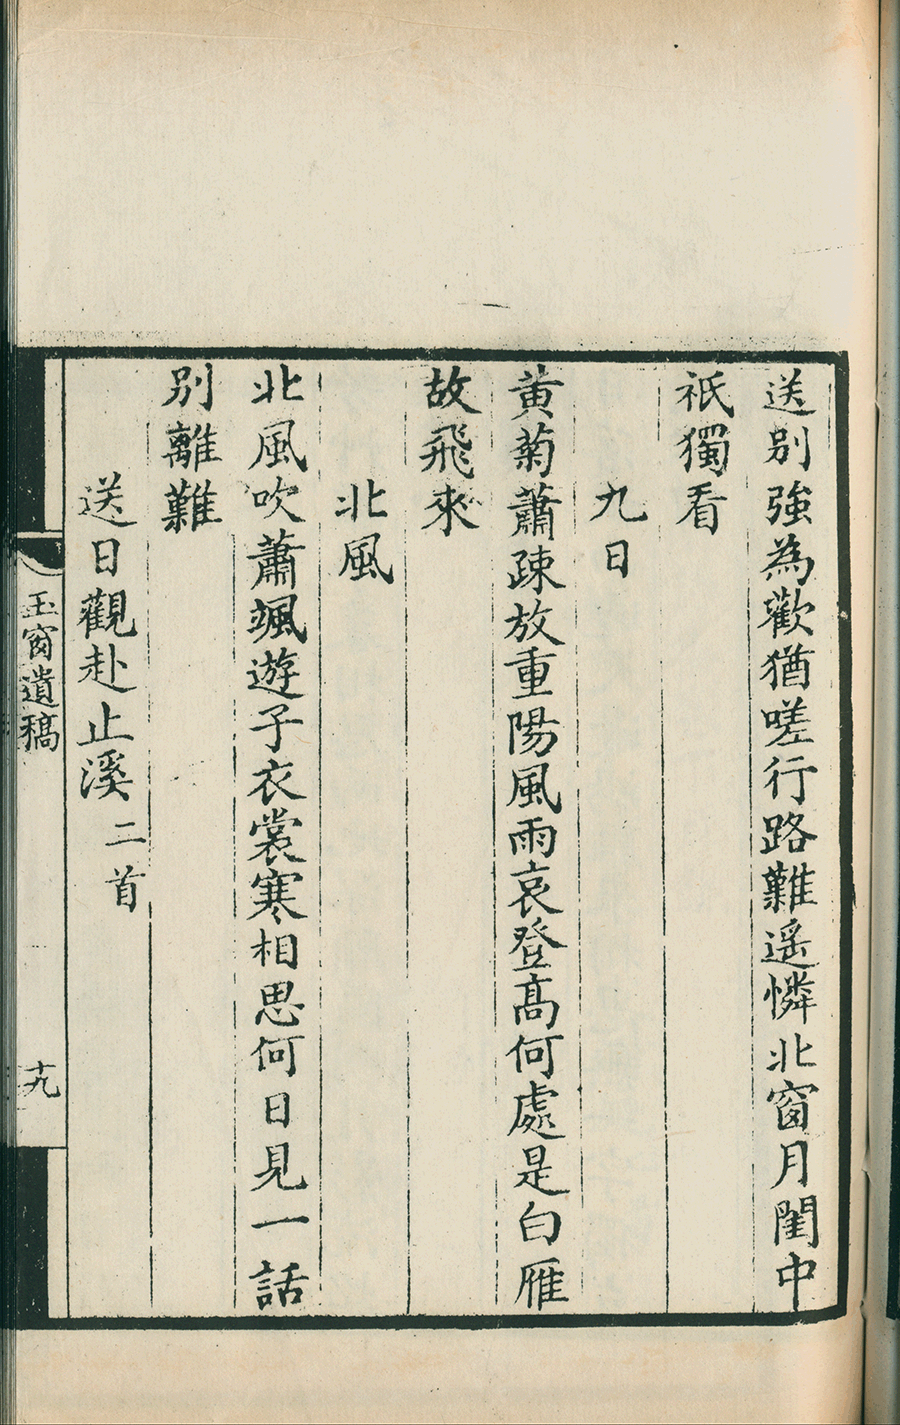 送別強為歡猶嗟行路難遥憐北窗月閨中
祇獨看
九日
黃菊蕭疎放重陽風雨哀登高何處是白雁
故飛來
北風
北風吹蕭颯遊子衣裳寒相思何日見一話
別離難
送日觀赴止溪二首
玉窗遺稿
十九